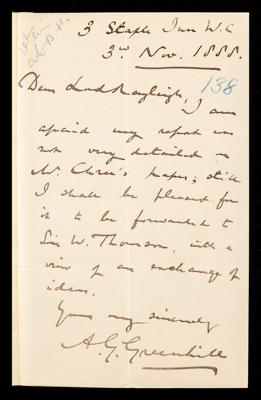 retain
3 Staple Inn W.C
3rd Nov. 1888.
138
Dear Lord Rayleigh, I am
afraid my report was
not very detailed on
Mr. Chree's paper; still
I shall be pleased for
it to be forwarded to
Sir W. Thomson, with a
view of an exchange of
ideas.
Yours very sincerely
A.G. Greenhill